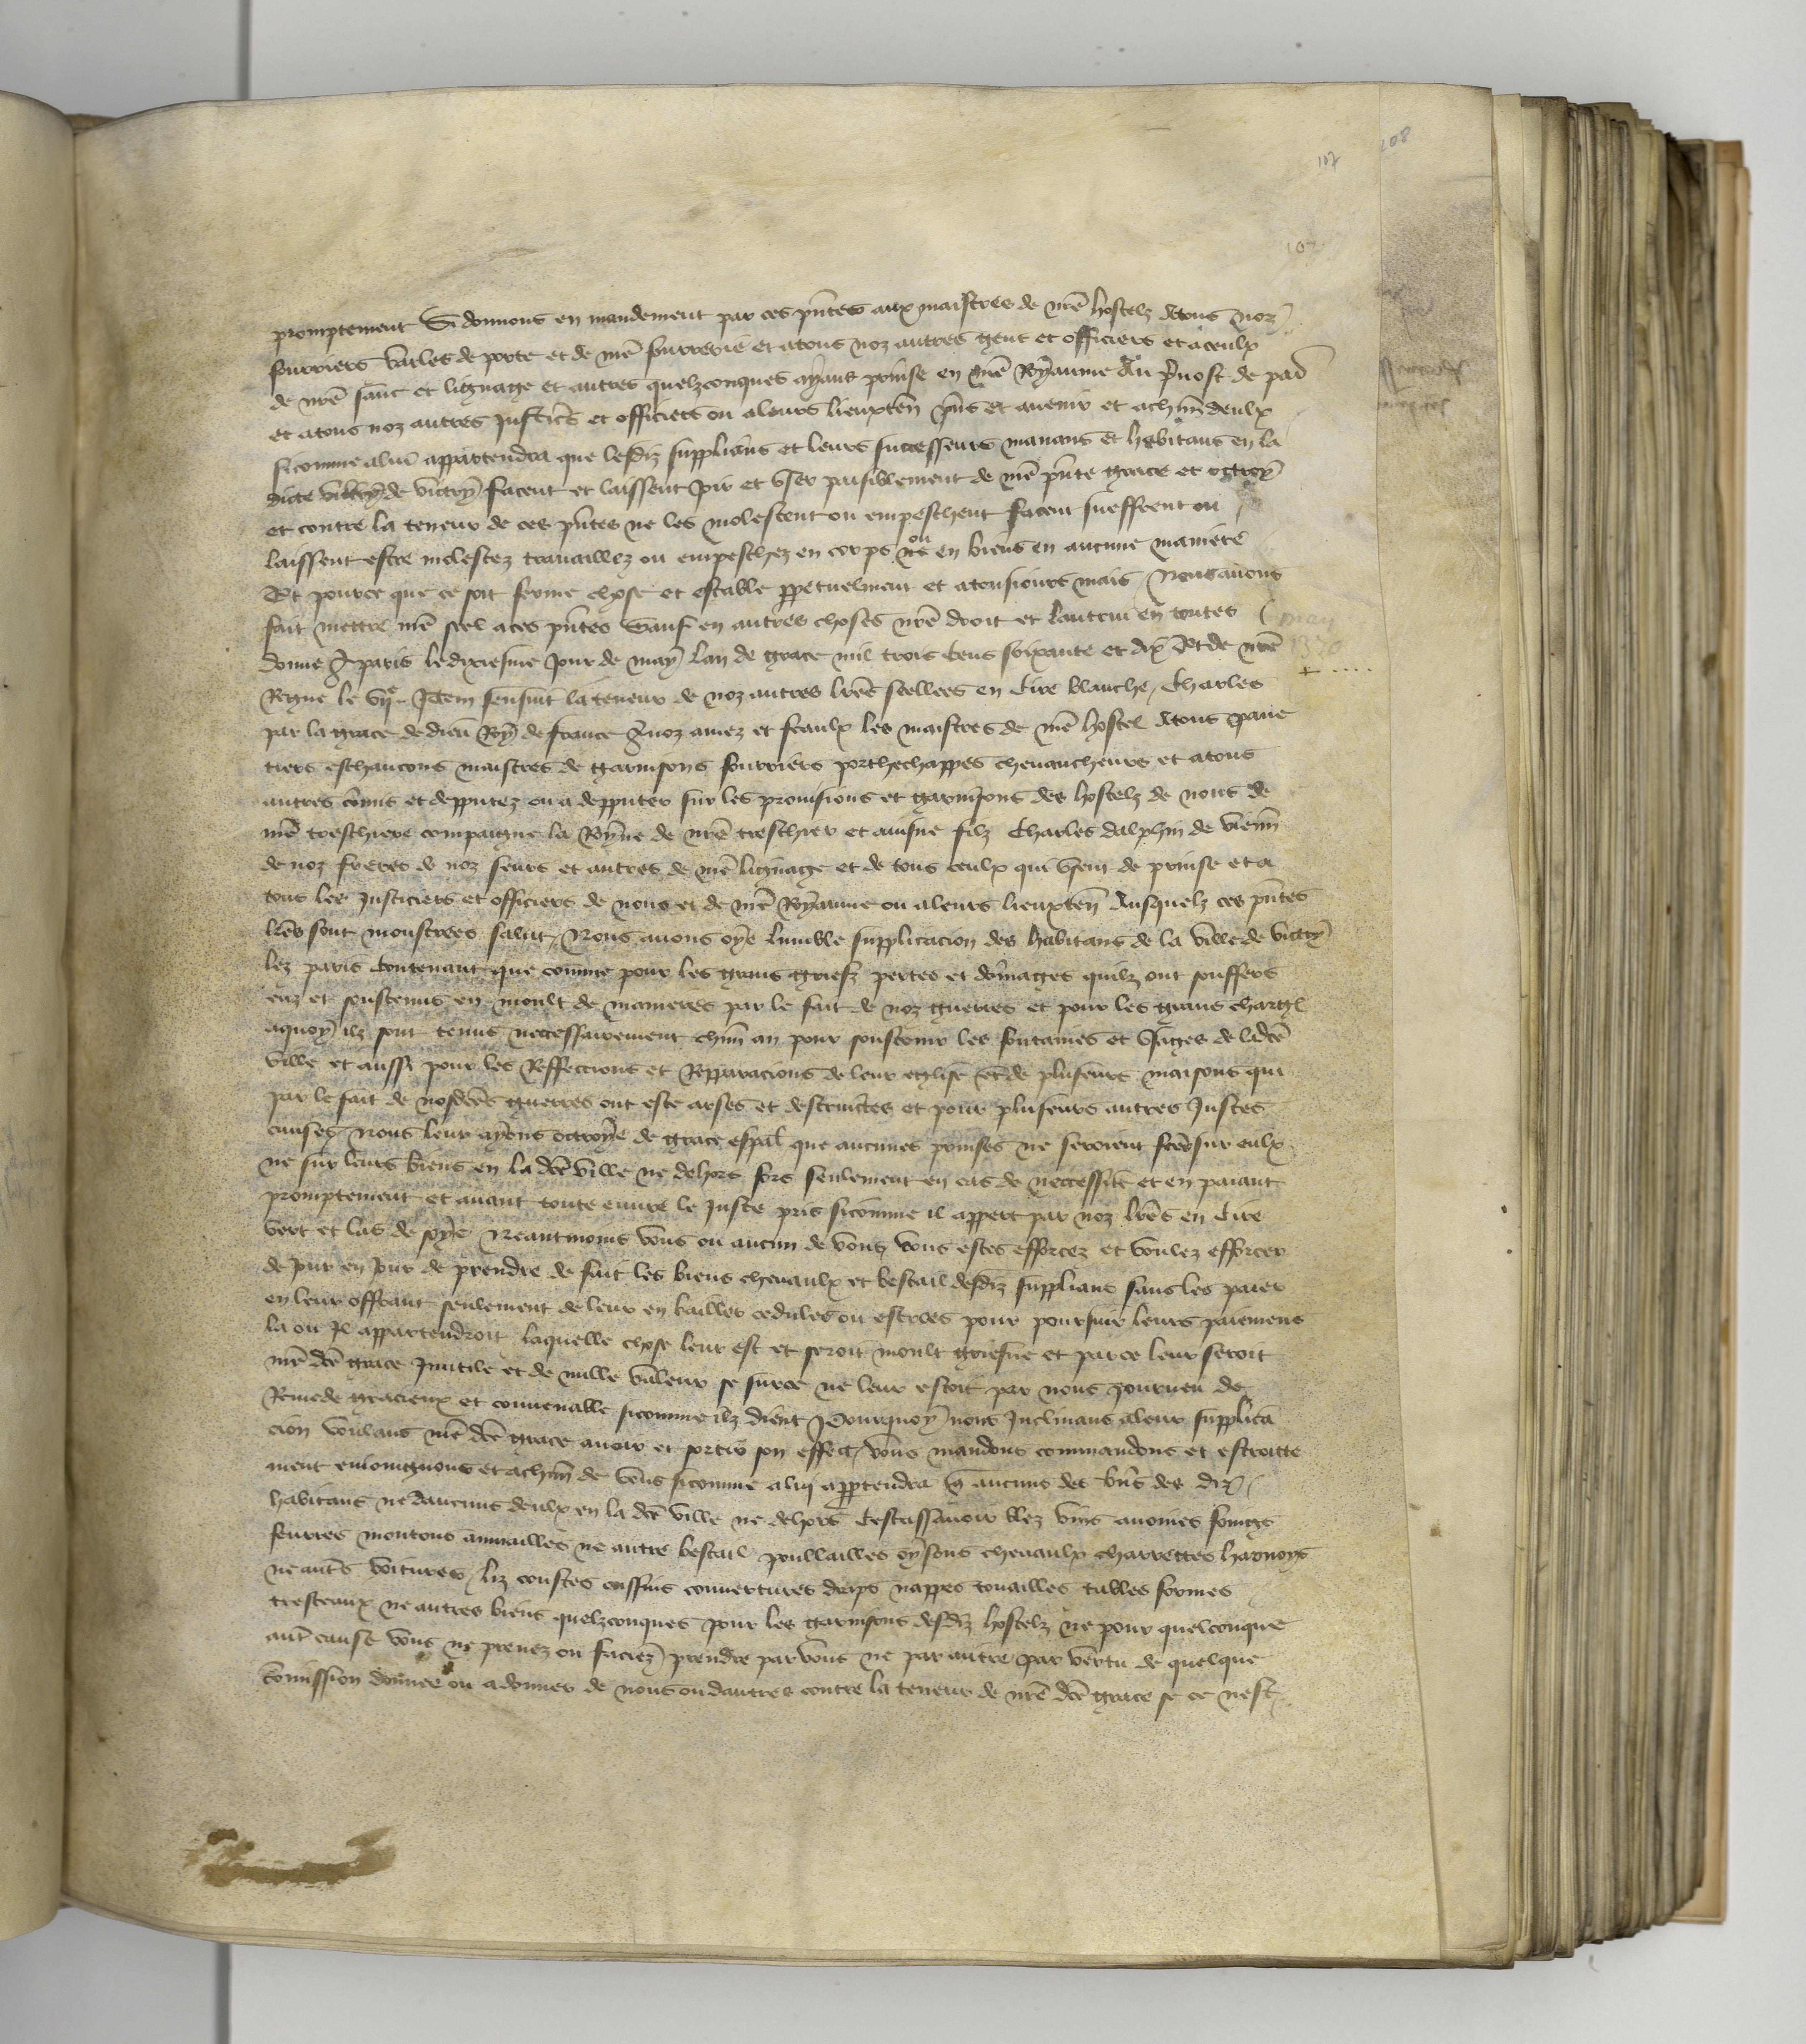 107 108
107
promptement Si donnons en mandement par ces pñtes aux maistres de nrẽ hostelz Atous noz
fourriers varles de porte et de nrẽ fourrerie et atous noz autres gens et officiers et aceulx
de nrẽ sanc et lignage et autres quelzconques ayans prinse en nrẽ Royaume Au p̃uost de par̃
et atous noz autres Justic̃s et officiers ou aleurs lieuxteñ pñs et auenir et achũn deulx
sicomme alui appartendra que lesdiz supplians et leurs successeurs manans et habitans en la
dicte ville de victry facent et laissent Joir et vser paisiblement de nrẽ pñte grace et ottroy
et contre la teneur de ces pñtes ne les molestent ou empeschent facent sueffrent ou
laissent estre molestez trauaillez ou empeschez en corps ou en biens en aucune maniere
Et pource que ce soit ferme chose et estable ꝑpetuelment et atousiours mais Nous auons
fait mettre nrẽ scel aces pñtes Sauf en autres choses nrẽ droit et lautrui en toutes
may
donne A paris le dixiesme Jour de may Lan de grace mil trois cens soixante et dix Et de nrẽ
1370
Regne le vijᵉ Item sensuit la teneur de noz autres lrẽs scellees en Cire blanche, Charles
par la grace de dieu Roy de france A noz amez et feaulx les maistres de nrẽ hostel Atous pane
tiers eschancons maistres de garnisons fourriers porthechappes cheuaucheurs et atous
autres cõmis et depputez ou a depputer sur les prouisions et garnisons des hostelz de nous de
nrẽ treschiere compaigne la Royne de nrẽ treschier et ainsne filz Charles dalphin de vienñ
de noz freres de noz seurs et autres de nrẽ lignage et de tous ceulx qui vsent de prinse et a
tous les Justiciers et officiers de nous et de nrẽ Royaume ou aleurs lieuxteñ Ausquelz ces pñtes
lrẽs sont monstrees salut, Nous auons oye lumble supplicacion des habitans de la ville de victry
lez paris Contenant que comme pour les grans griefz pertes et dõmages quilz ont souffers
euz et soustenus en moult de manieres par le fait de noz guerres et pour les grans charg̃
aquoy ilz sont tenus neccessairement chũn an pour soustenir les fontaines et vsages de ladcẽ
ville et aussi pour les Reffeccions et Repparacions de leur eglise et de pluseurs maisons qui
par le fait de nosdcẽs guerres ont este arses et destruictes et pour pluseurs autres Justes
causes Nous leur ayons octroye de grace espal̃ que aucunes prinses ne seroient fcẽs sur eulx
ne sur leurs biens en la dcẽ ville ne dehors fors seulement en cas de neccessite et en paiant
promptement et auant toute euure le Juste pris sicomme il appert par noz lrẽs en Cire
vert et las de soye Neantmoins vous ou aucun de vous vous estes efforcez et voulez efforcer
de Jour en Jour de prendre de fait les biens cheuaulx et bestail desdiz supplians sans les paier
en leur offrant seulement de leur en bailler cedules ou escroes pour poursuir leurs paiemens
la ou Il appartendroit laquelle chose leur est et seroit moult griefue et par ce leur seroit
nrẽ dcẽ grace Inutile et de nulle valeur se surce ne leur estoit par nous pourueu de
Remede gracieux et conuenable sicomme ilz dient Pourquoy nous Inclinans aleur supplica
cion voulans nrẽ dcẽ grace auoir et sortir son effect, vous mandons commandons et estroitte
ment enioingnons et achũn de vous sicomme a luy apꝑtendra q̃ aucuns des biẽs des diz
habitans ne daucuns deulx en la dcẽ ville ne dehors Cestassauoir blez vins auoines foings
feurres moutons aumailles ne autre bestail poullailles oysons cheuaulx charrettes harnoys
ne autẽs voitures, liz coustes cussins couuertures draps nappes touailles tables formes
tresteaux ne autres biens quelzconques pour les garnisons desdiz hostelz ne pour quelconque
autẽ cause vous ne prenez ou faciez prendre par vous ne par autre par vertu de quelque
cõmission donnee ou a donner de nous ou dautres contre la teneur de nrẽ dcẽ grace se ce nest